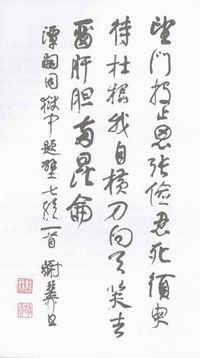 望门投止思张俭忍死须臾
待杜根我自横刀向天笑去
留肝胆两昆侖
谭嗣同狱中题壁七绝一首 谢 书